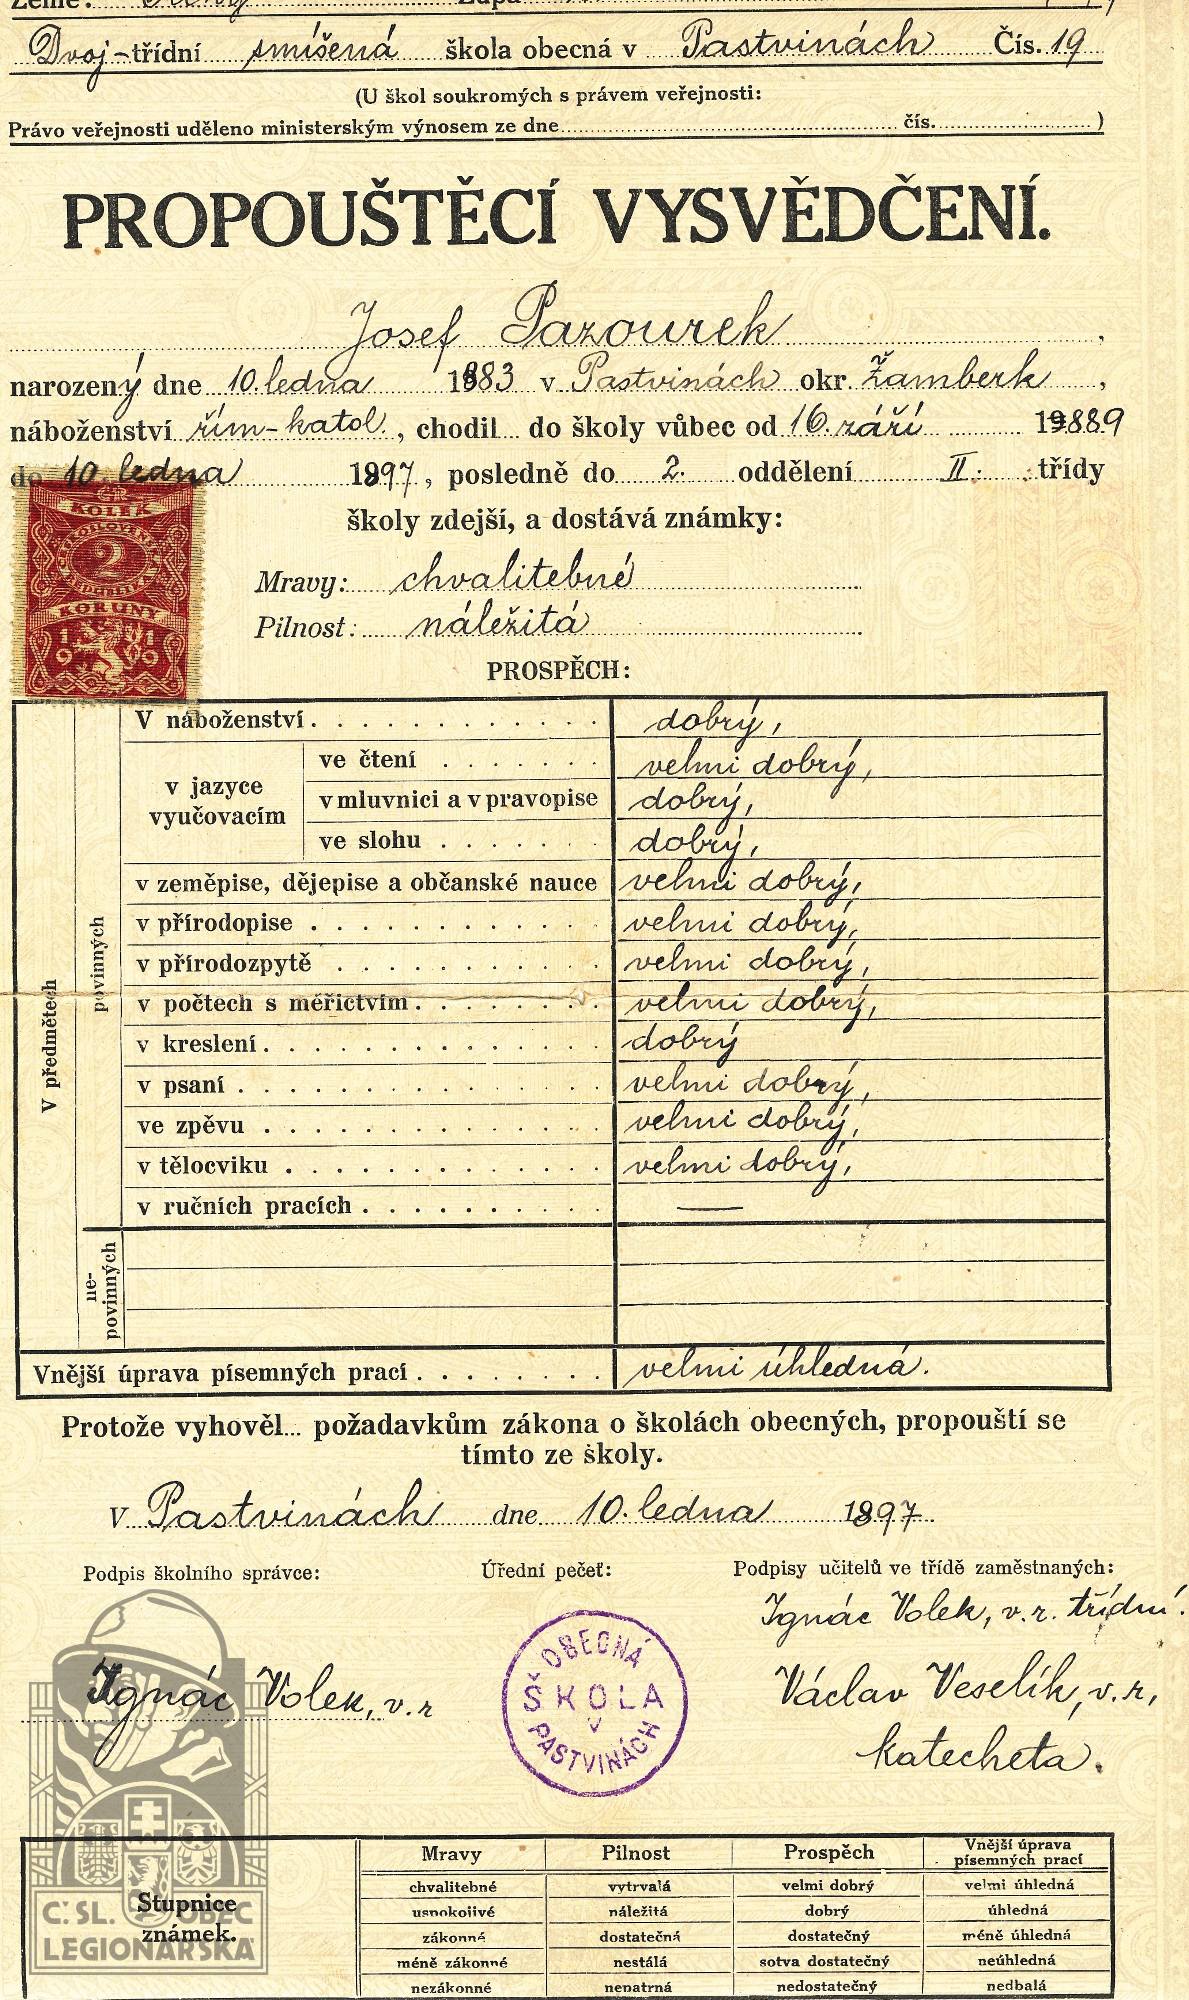 Země: Čechy Župa
Dvoj-třídní smíšená škola obecná v Pastvinách Čís. 19
(U škol soukromých s právem veřejnosti:
Právo veřejnosti uděleno ministerským výnosem ze dne čís. )
PROPOUŠTĚCÍ VYSVĚDČENÍ.
Josef Pazourek,
narozený dne 10. ledna 1883 v Pastvinách okr. Žamberk,
náboženství řím-katol., chodil do školy vůbec od 16. září 19889
do 10. ledna 1897, posledně do 2. oddělení II. třídy
školy zdejší, a dostává známky:
KOLEK
2
KORUNY
1919
Mravy: chvalitebné
Pilnost: náležitá
PROSPĚCH:
V předmětech
povinných
V náboženství dobrý,
v jazyce vyučovacím
ve čtení velmi dobrý,
v mluvnici a v pravopise dobrý,
ve slohu dobrý,
v zeměpise, dějepise a občanské nauce velmi dobrý,
v přírodopise velmi dobrý,
v přírodozpytě velmi dobrý,
v počtech s měřictvím velmi dobrý,
v kreslení dobrý
v psaní velmi dobrý,
ve zpěvu velmi dobrý,
v tělocviku velmi dobrý,
v ručních pracích —
ne-povinných
Vnější úprava písemných prací velmi úhledná.
Protože vyhověl požadavkům zákona o školách obecných, propouští se
tímto ze školy.
V Pastvinách dne 10. ledna 1897.
Podpis školního správce: Úřední pečeť: Podpisy učitelů ve třídě zaměstnaných:
Ignác Volek, v.r. třídní.
Ignác Volek, v.r
OBECNÁ
ŠKOLA
V
PASTVINÁCH
Václav Veselík, v.r.,
katecheta.
Stupnice známek.
Mravy Pilnost Prospěch Vnější úprava písemných prací
chvalitebné vytrvalá velmi dobrý velmi úhledná
uspokojivé náležitá dobrý úhledná
zákonné dostatečná dostatečný méně úhledná
méně zákonné nestálá sotva dostatečný neúhledná
nezákonné nepatrná nedostatečný nedbalá
Č. SL. OBEC
LEGIONÁŘSKÁ